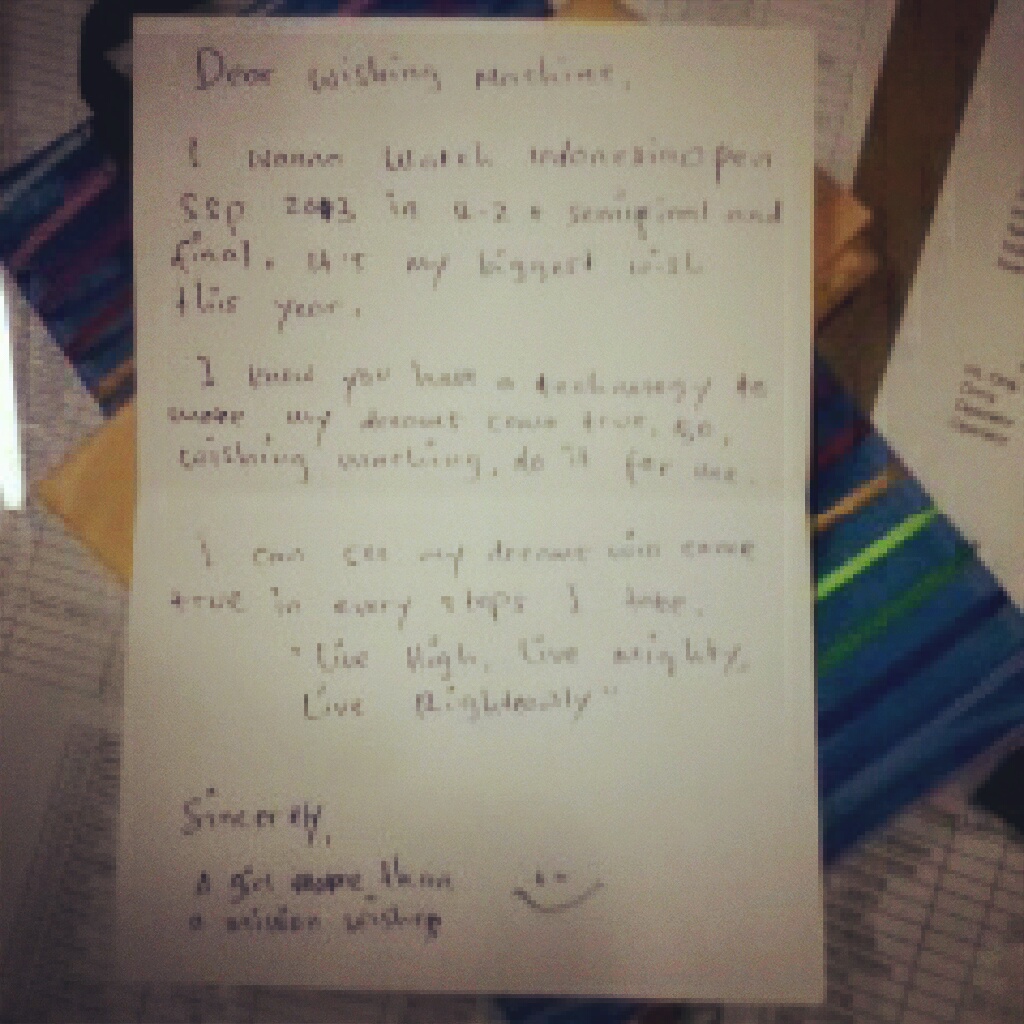 Dear wishing machine,
I wanna watch Indonesia Open
SSP 2013 in semifinal and
final. It's my biggest wish
this year.
I know you have a technology to
make my dreams come true. So,
wishing machine, do it for me.
I can see my dreams will come
true in every steps I take.
"Live High, Live mighty,
Live Righteously"
Sincerely,
A girl more than
a million wishes